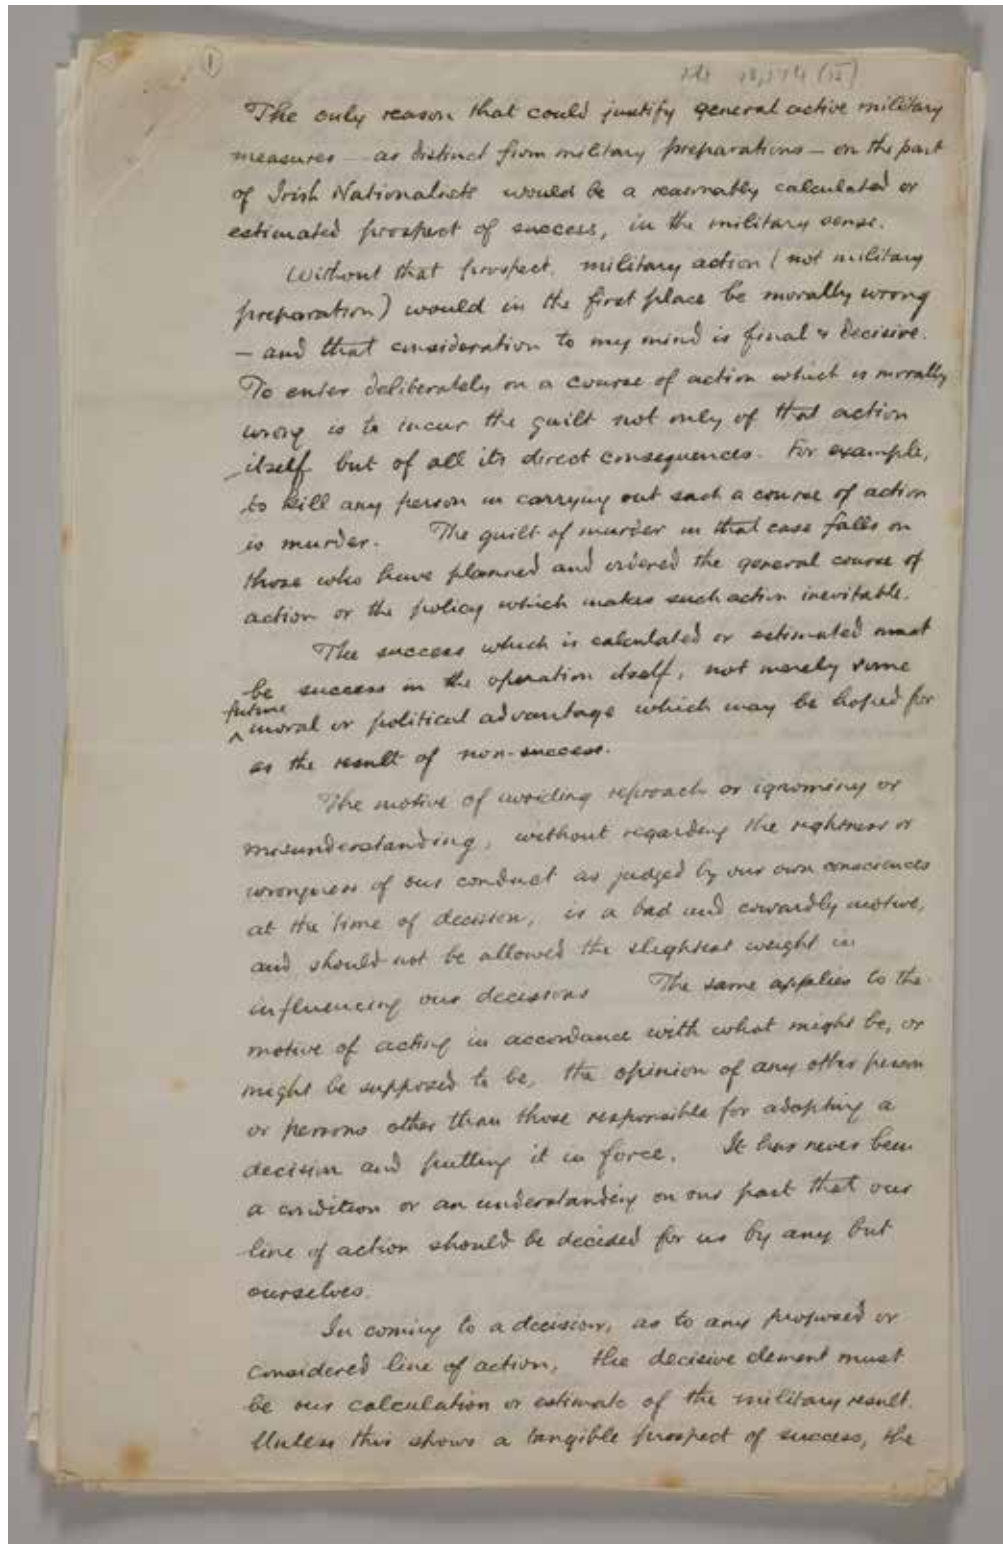 1
Ms 18,174 (15)
The only reason that could justify general active military
measures — as distinct from military preparations — on the part
of Irish Nationalists would be a reasonably calculated or
estimated prospect of success, in the military sense.
Without that prospect, military action (not military
preparation) would in the first place be morally wrong
— and that consideration to my mind is final & decisive.
To enter deliberately on a course of action which is morally
wrong is to incur the guilt not only of that action
itself but of all its direct consequences. For example,
to kill any person in carrying out such a course of action
is murder. The guilt of murder in that case falls on
those who have planned and ordered the general course of
action or the policy which makes such action inevitable.
The success which is calculated or estimated must
be success in the operation itself, not merely some
future
^ moral or political advantage which may be hoped for
as the result of non-success.
The motive of avoiding reproach or ignominy or
misunderstanding, without regarding the rightness or
wrongness of our conduct as judged by our own consciences
at the time of decision, is a bad and cowardly motive,
and should not be allowed the slightest weight in
influencing our decisions The same applies to the
motive of acting in accordance with what might be, or
might be supposed to be, the opinion of any other person
or persons other than those responsible for adopting a
decision and putting it in force. It has never been
a condition or an understanding on our part that our
line of action should be decided for us by any but
ourselves.
In coming to a decision, as to any proposed or
considered line of action, the decisive element must
be our calculation or estimate of the military result.
Unless this shows a tangible prospect of success, the